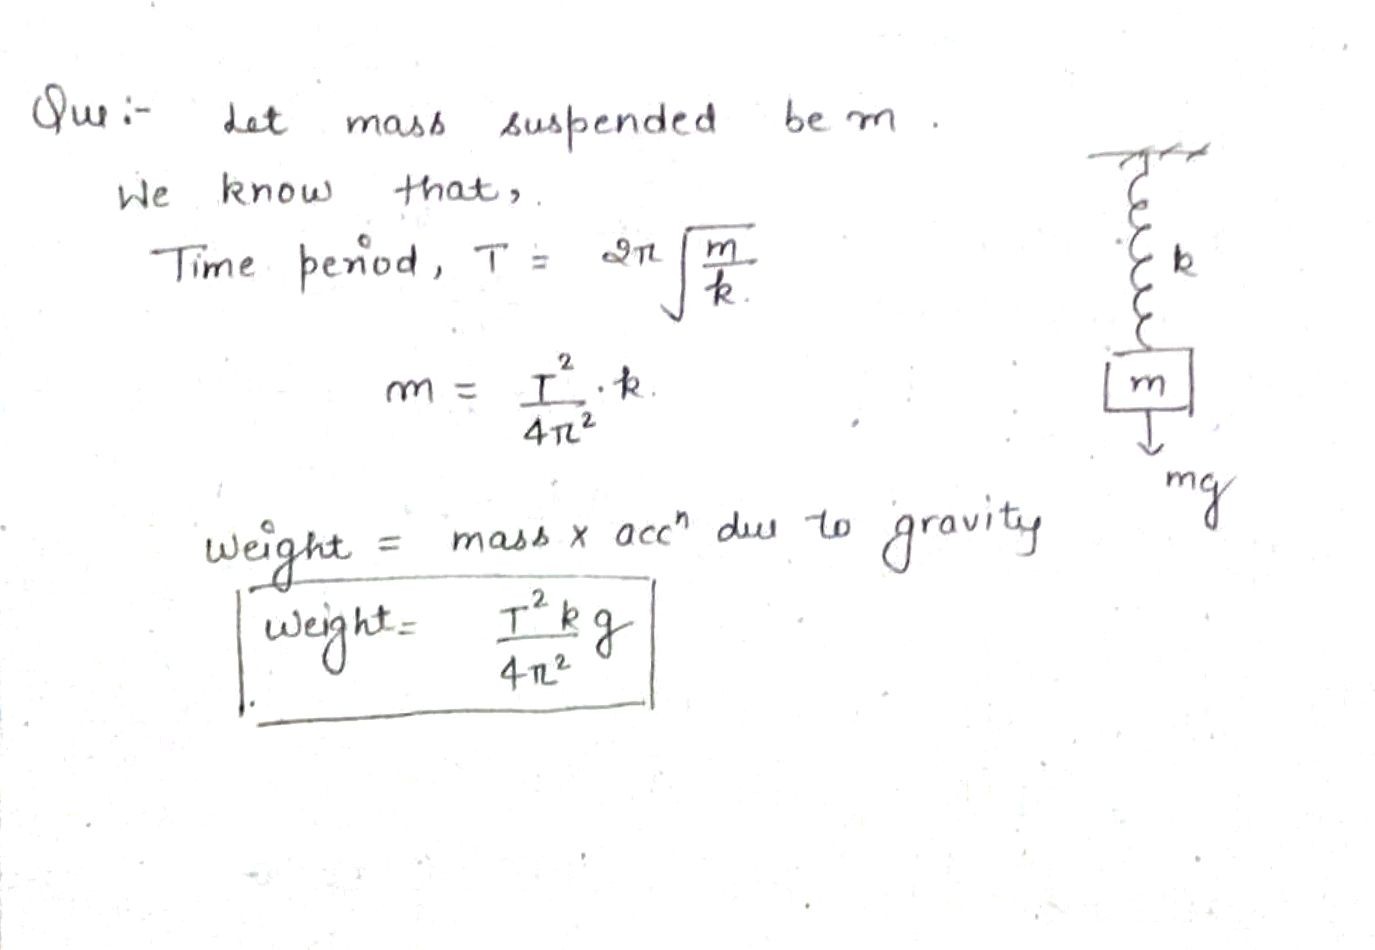 Que :- Let mass suspended be m .
We know that,
Time period, T = 2π √(m/k)
k
m = T²/4π² . k
m
mg
Weight = mass x accⁿ due to gravity
Weight = T² k g / 4π²